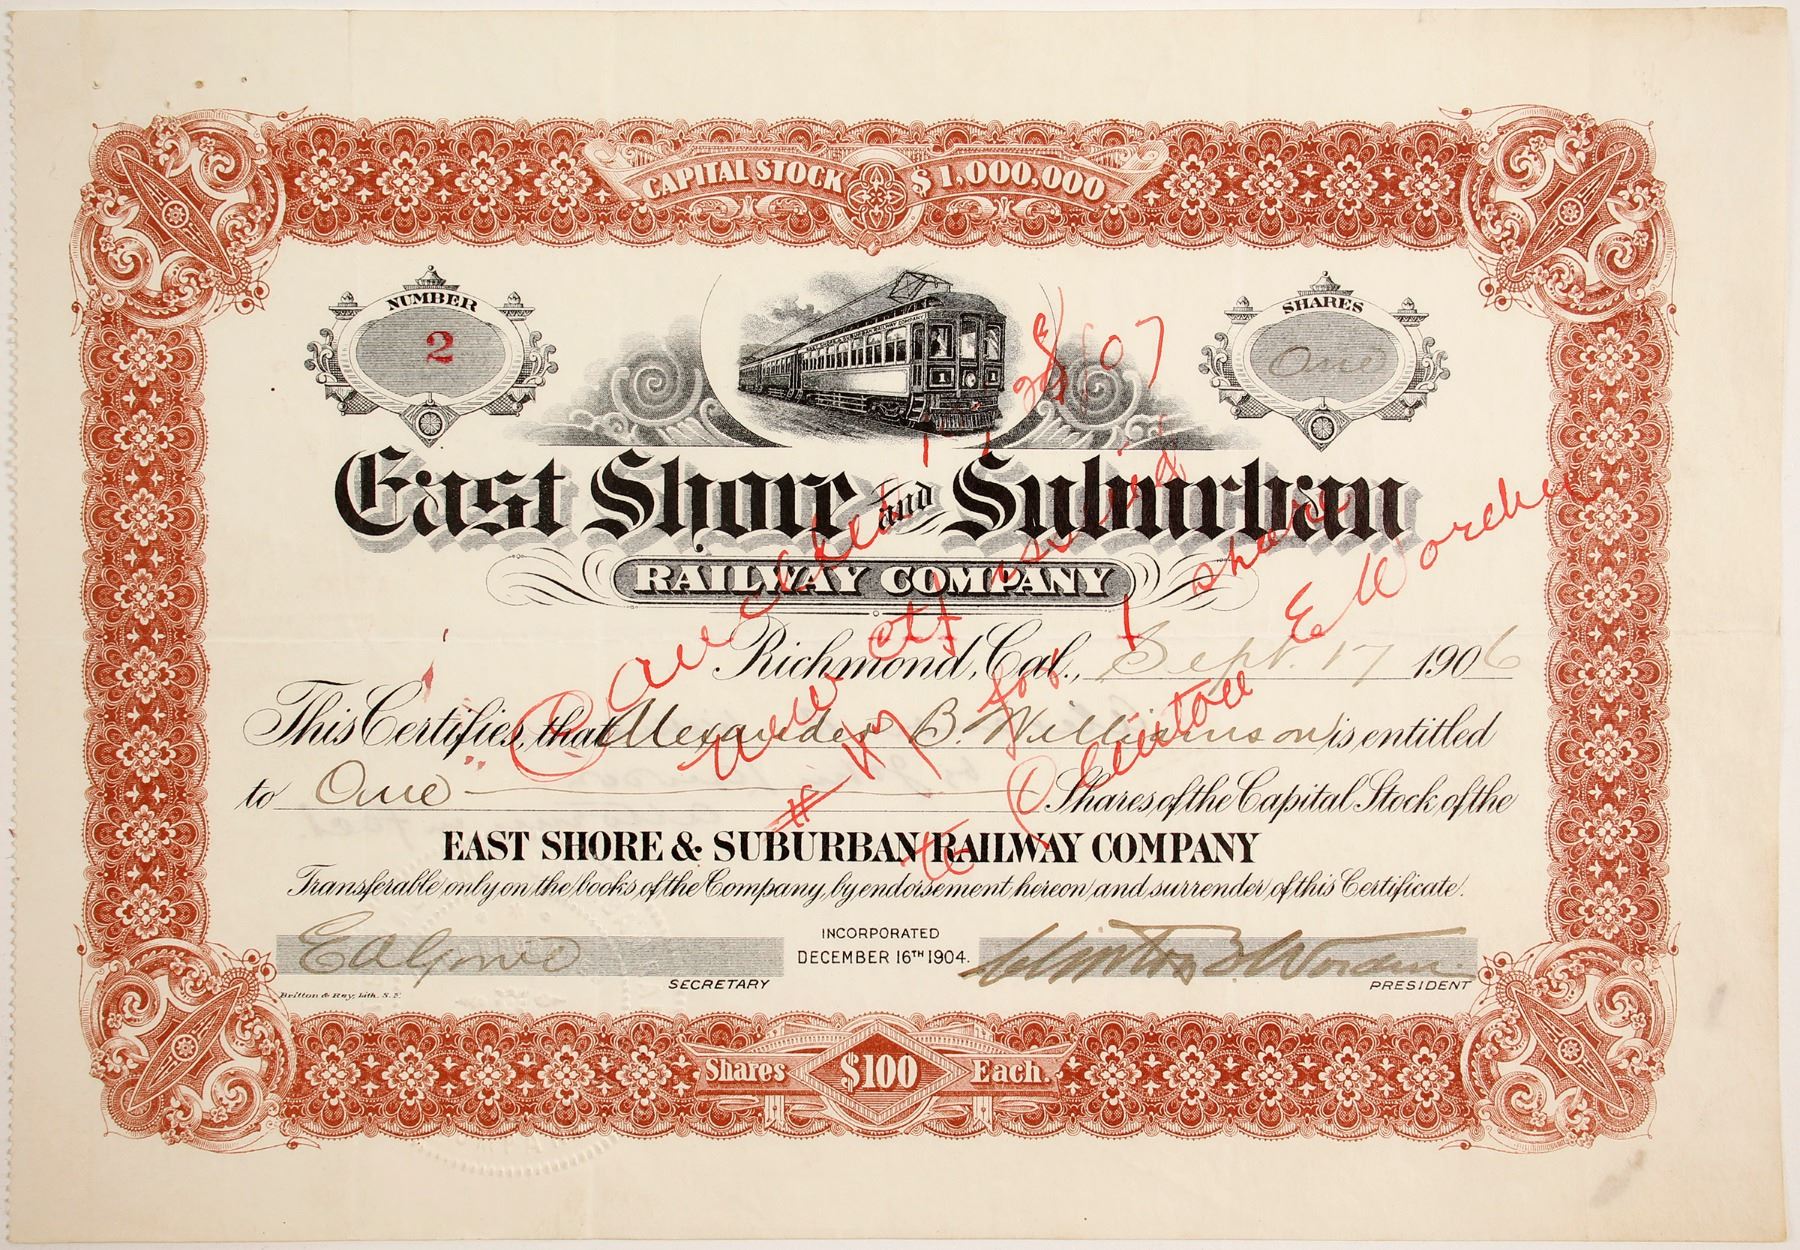 CAPITAL STOCK $1,000,000
NUMBER
2
SHARES
One
EAST SHORE & SUBURBAN RAILWAY COMPANY
1 1
East Shore and Suburban
RAILWAY COMPANY
Richmond, Cal., Sept. 17 1906
This Certifies, that Alexander B. Williamson is entitled
to One Shares of the Capital Stock of the
EAST SHORE & SUBURBAN RAILWAY COMPANY
Transferable only on the books of the Company, by endorsement hereon and surrender of this Certificate.
INCORPORATED
DECEMBER 16TH 1904.
SECRETARY
Clinton E. Worden
PRESIDENT
Britton & Rey, Lith. S.F.
Shares $100 Each.
Cancelled 07
new ctf issued
for 1 share
to Clinton E Worden